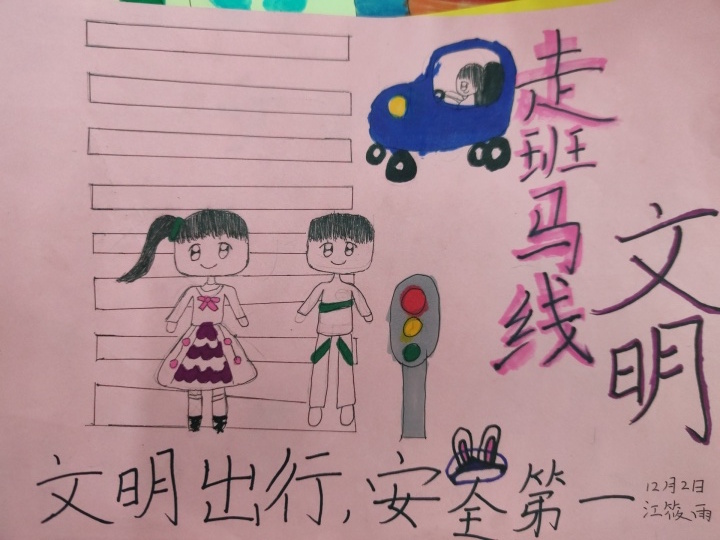 走班马线
文明
文明出行,安全第一
12月2日
江筱雨